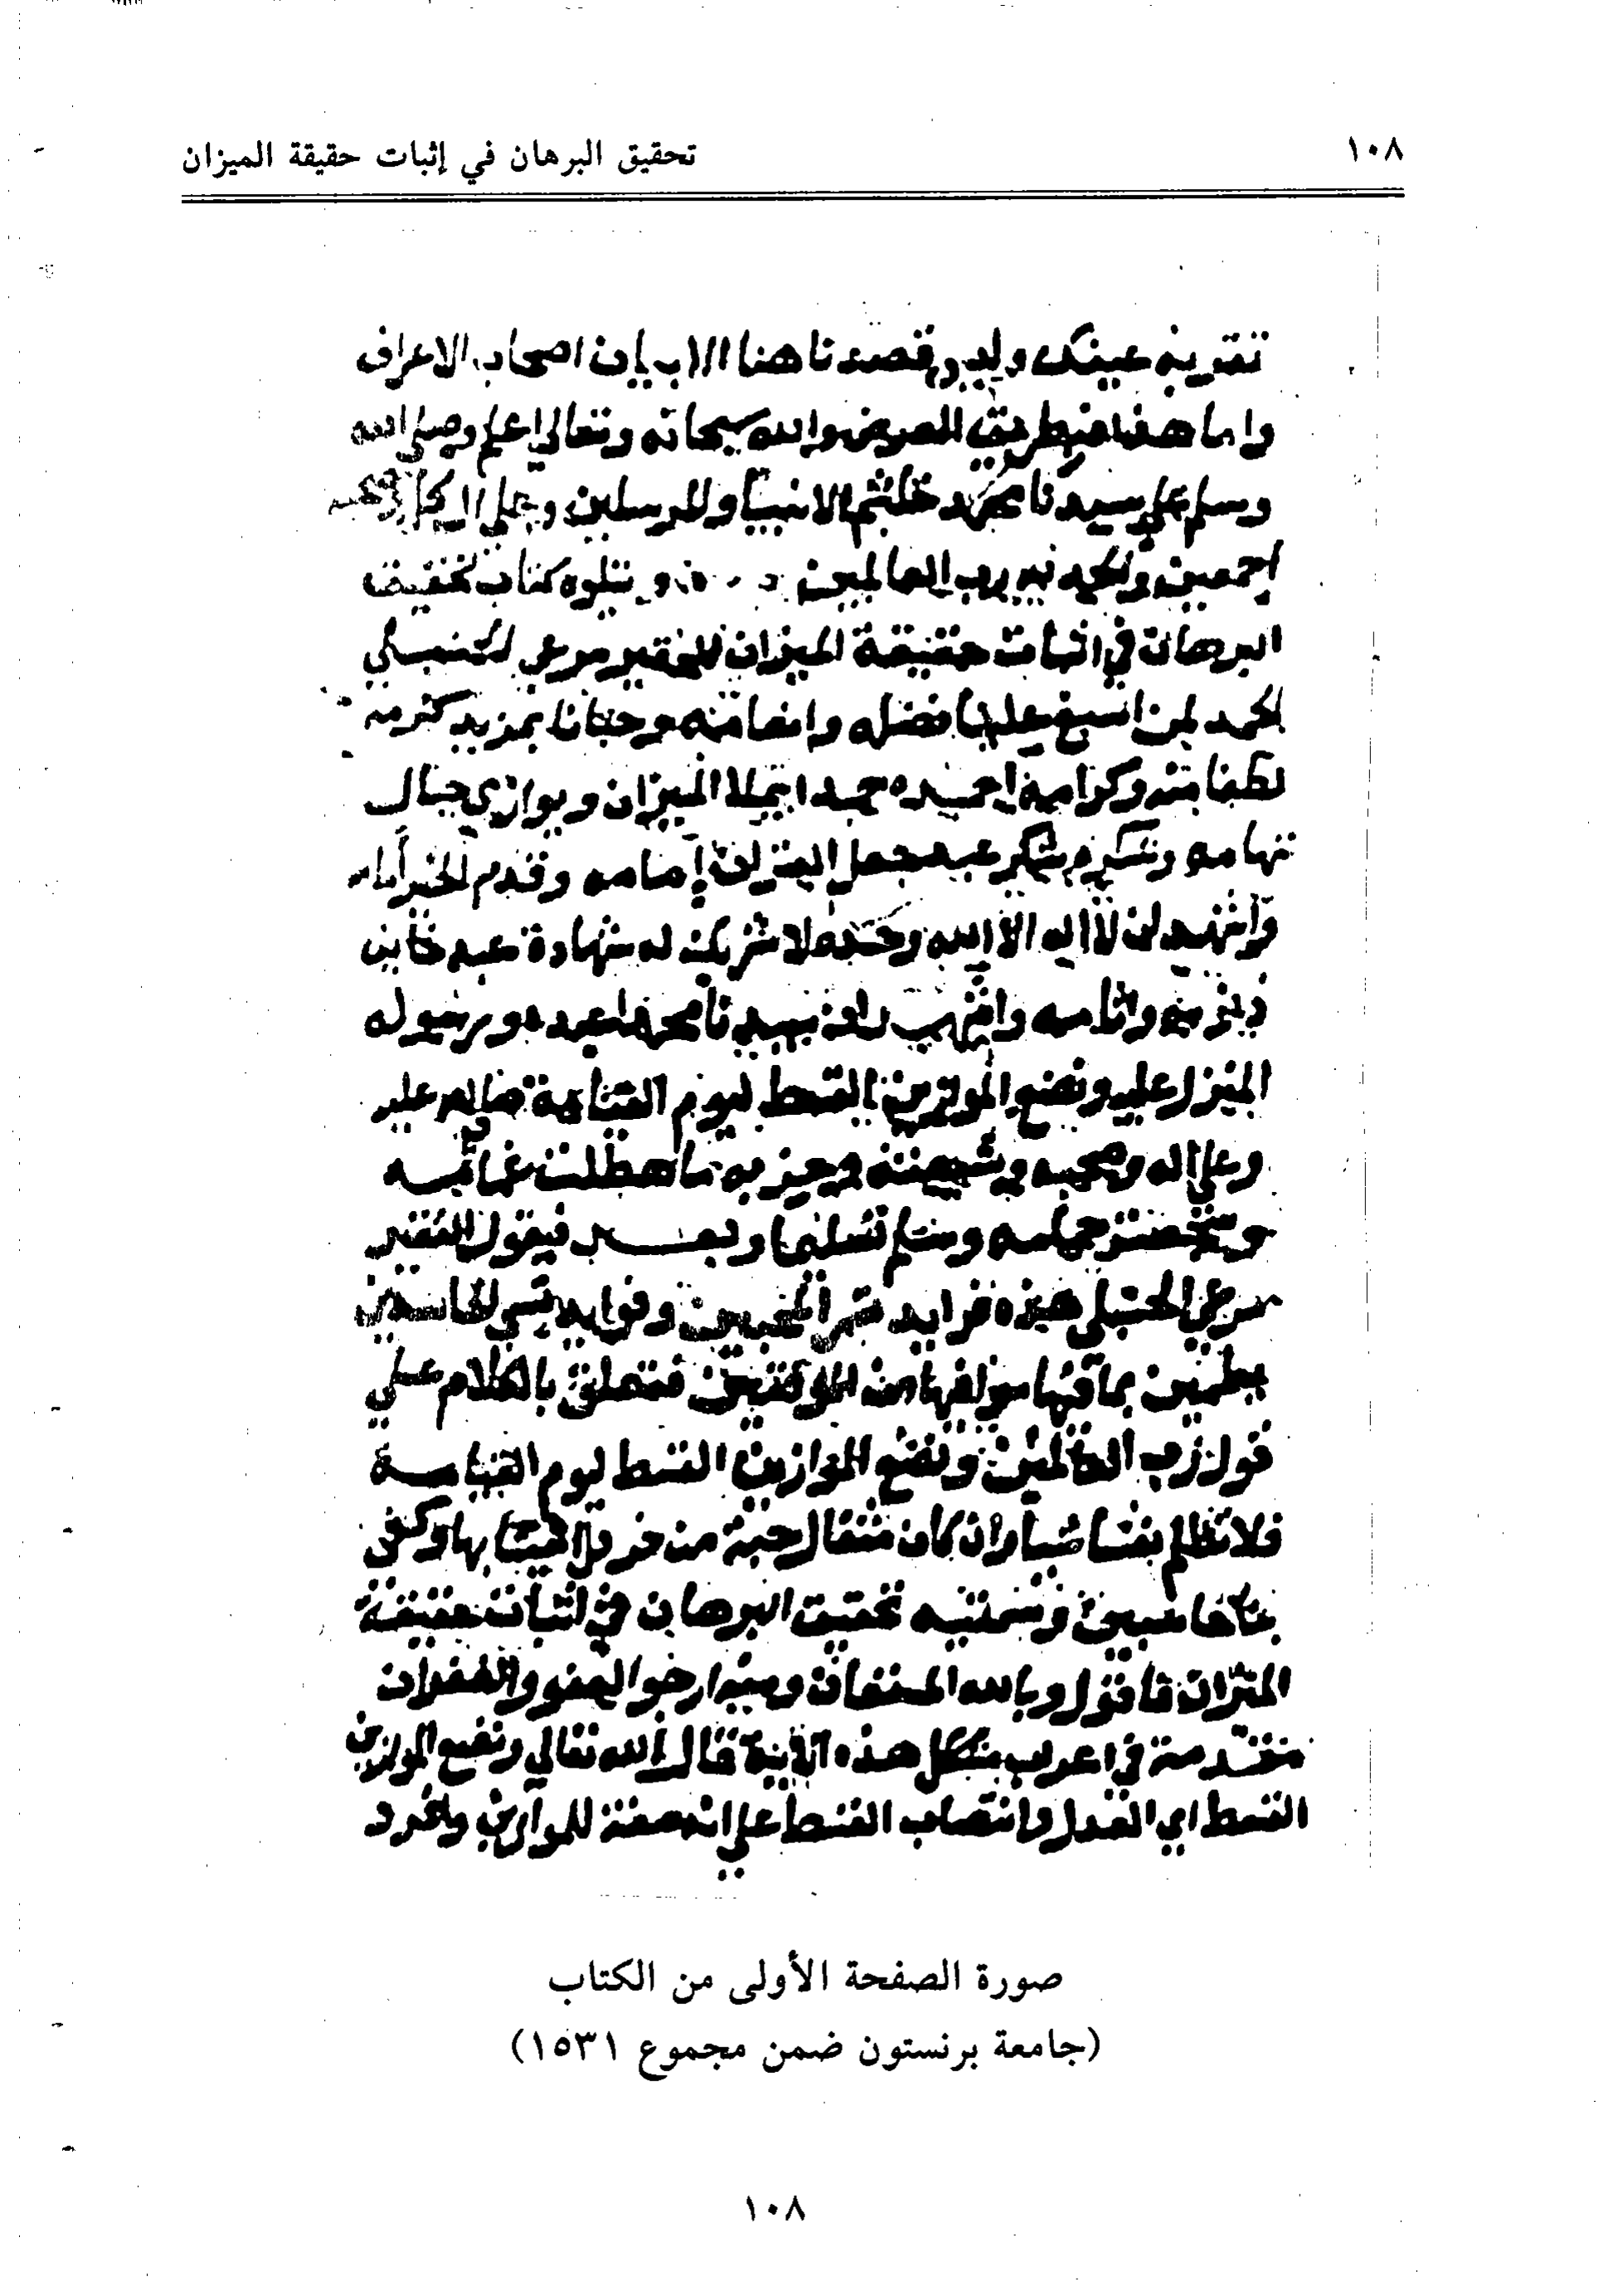 ١٠٨
تحقيق البرهان في إثبات حقيقة الميزان
تقر به عينك وليس قصدنا هنا الا بيان اصحاب الاعراف
واما هذا فبطريق العرض والله سبحانه وتعالى اعلم وصلى الله
وسلم على سيدنا محمد خاتم الانبيا والمرسلين وعلى
اجمعين والحمد لله رب العالمين ويتلوه كتاب تحقيق
البرهان في اثبات حقيقة الميزان للفقير مرعي الحنبلي
الحمد لمن اسبغ علينا فضله وانعامه وحبانا بمزيد كرمه
وكرامه احمده حمدا يملا الميزان ويوازي جبال
تهامه ونشكره شكر عبد جعل امامه وقدم الخير امامه
واشهد ان لا اله الا الله وحده لا شريك له شهادة عبد خايف
ذنوبه واثامه واشهد ان سيدنا محمدا عبده ورسوله
المنزل عليه ونضع الموازين القسط ليوم القيامة صلى الله عليه
وعلى اله وصحبه وشيعته وحزبه ما هطلت غمامه
وسلم تسليما وبعد فيقول الفقير
مرعي الحنبلي هذه فرايد تسر المحبين وفوايد تسي الحاسدين
مولفها من تتعلق بالكلام على
قول رب العالمين ونضع الموازين القسط ليوم القيامة
فلا تظلم نفس شيا وان كان مثقال حبة من خردل اتينا بها وكفى
بنا حاسبين وسميته تحقيق البرهان في اثبات حقيقة
الميزان فاقول وبالله المستعان ومنه ارجو العفو والغفران
مقدمة في اعراب مشكل هذه الاية قال الله تعالى ونضع الموازين
القسط اي العدل وانتصاب القسط على انه صفة للموازين وافرد
صورة الصفحة الأولى من الكتاب
(جامعة برنستون ضمن مجموع ١٥٣١)
١٠٨